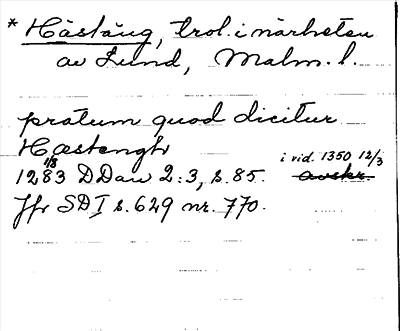 * Hästäng, trol. i närheten
av Lund, Malm. l.
pratum quod dicitur
Hæstængh
1/8 i vid. 1350 12/3
1283 DDan 2:3, s. 85. avskr.
Jfr SD I s. 629 nr. 770.